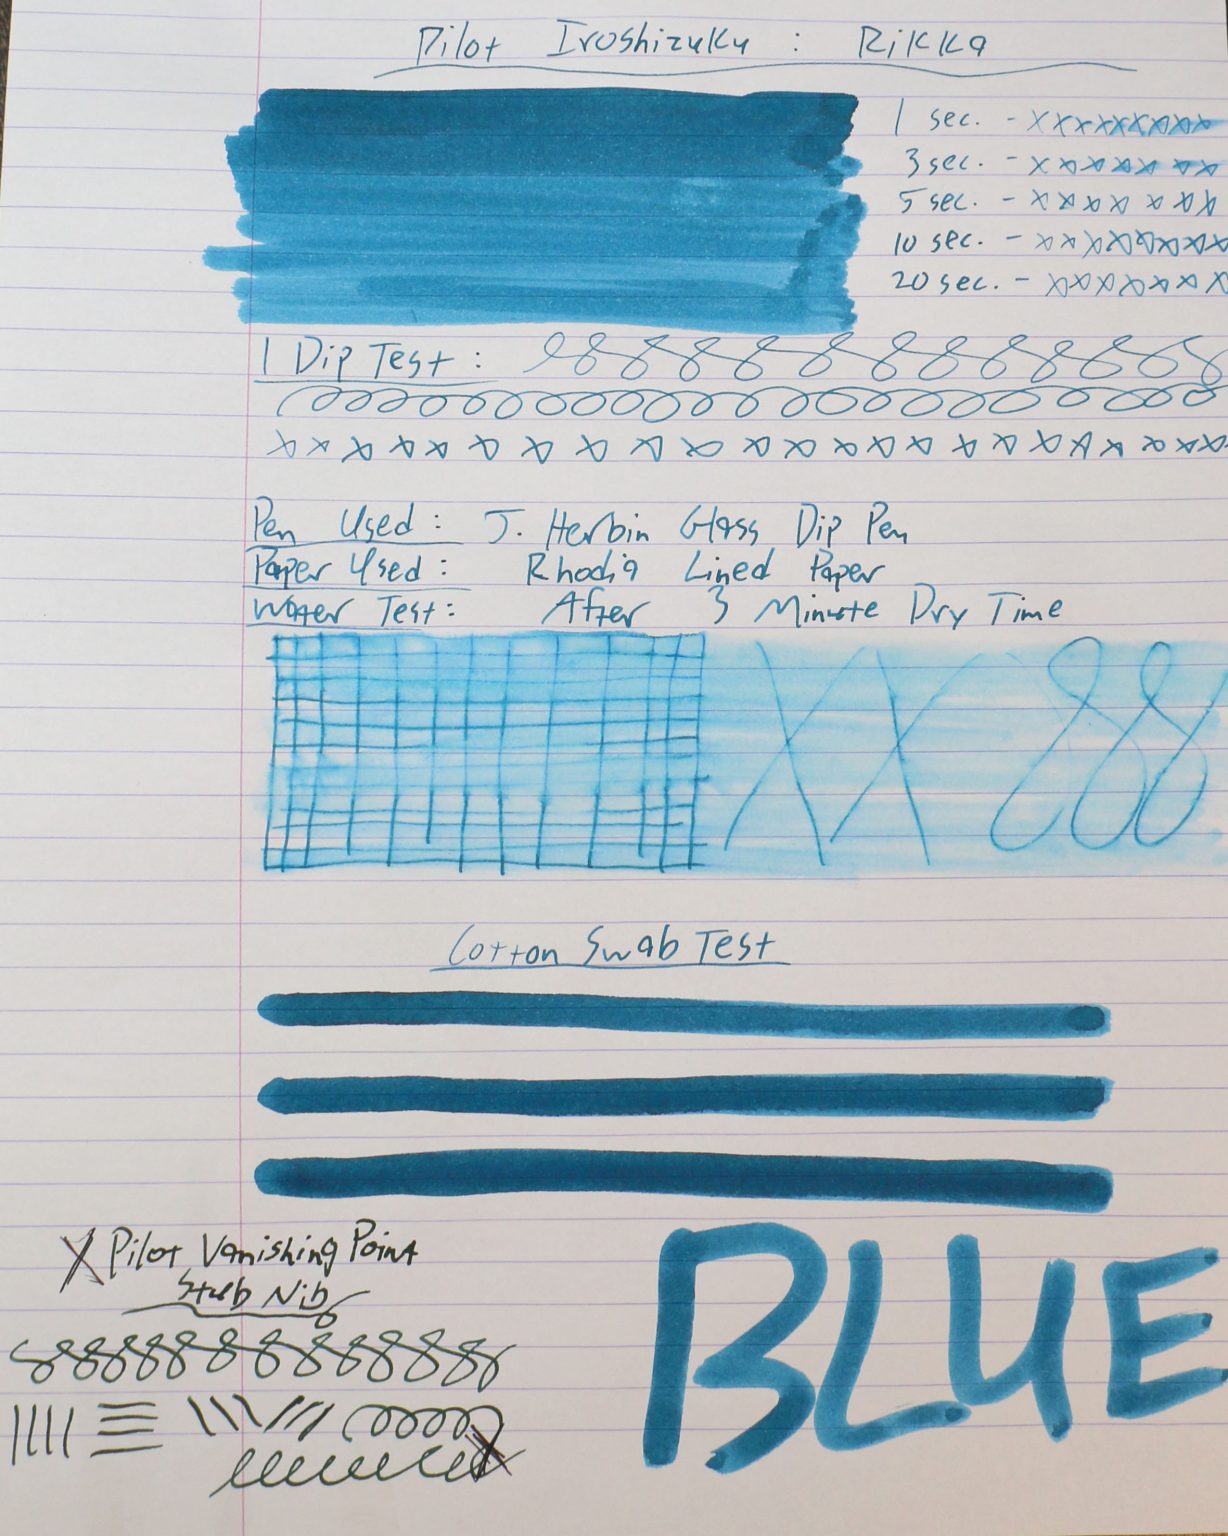 Pilot Iroshizuku : Rikka
1 sec. - xxxxxxxxx
3 sec. - xxxxxxxx
5 sec. - xxxxxxx
10 sec. - xxxxxxxx
20 sec. - xxxxxxx
1 Dip Test :
Pen Used : J. Herbin Glass Dip Pen
Paper Used : Rhodia Lined Paper
Water Test : After 3 Minute Dry Time
XX 88
Cotton Swab Test
X Pilot Vanishing Point
Stub Nib
BLUE